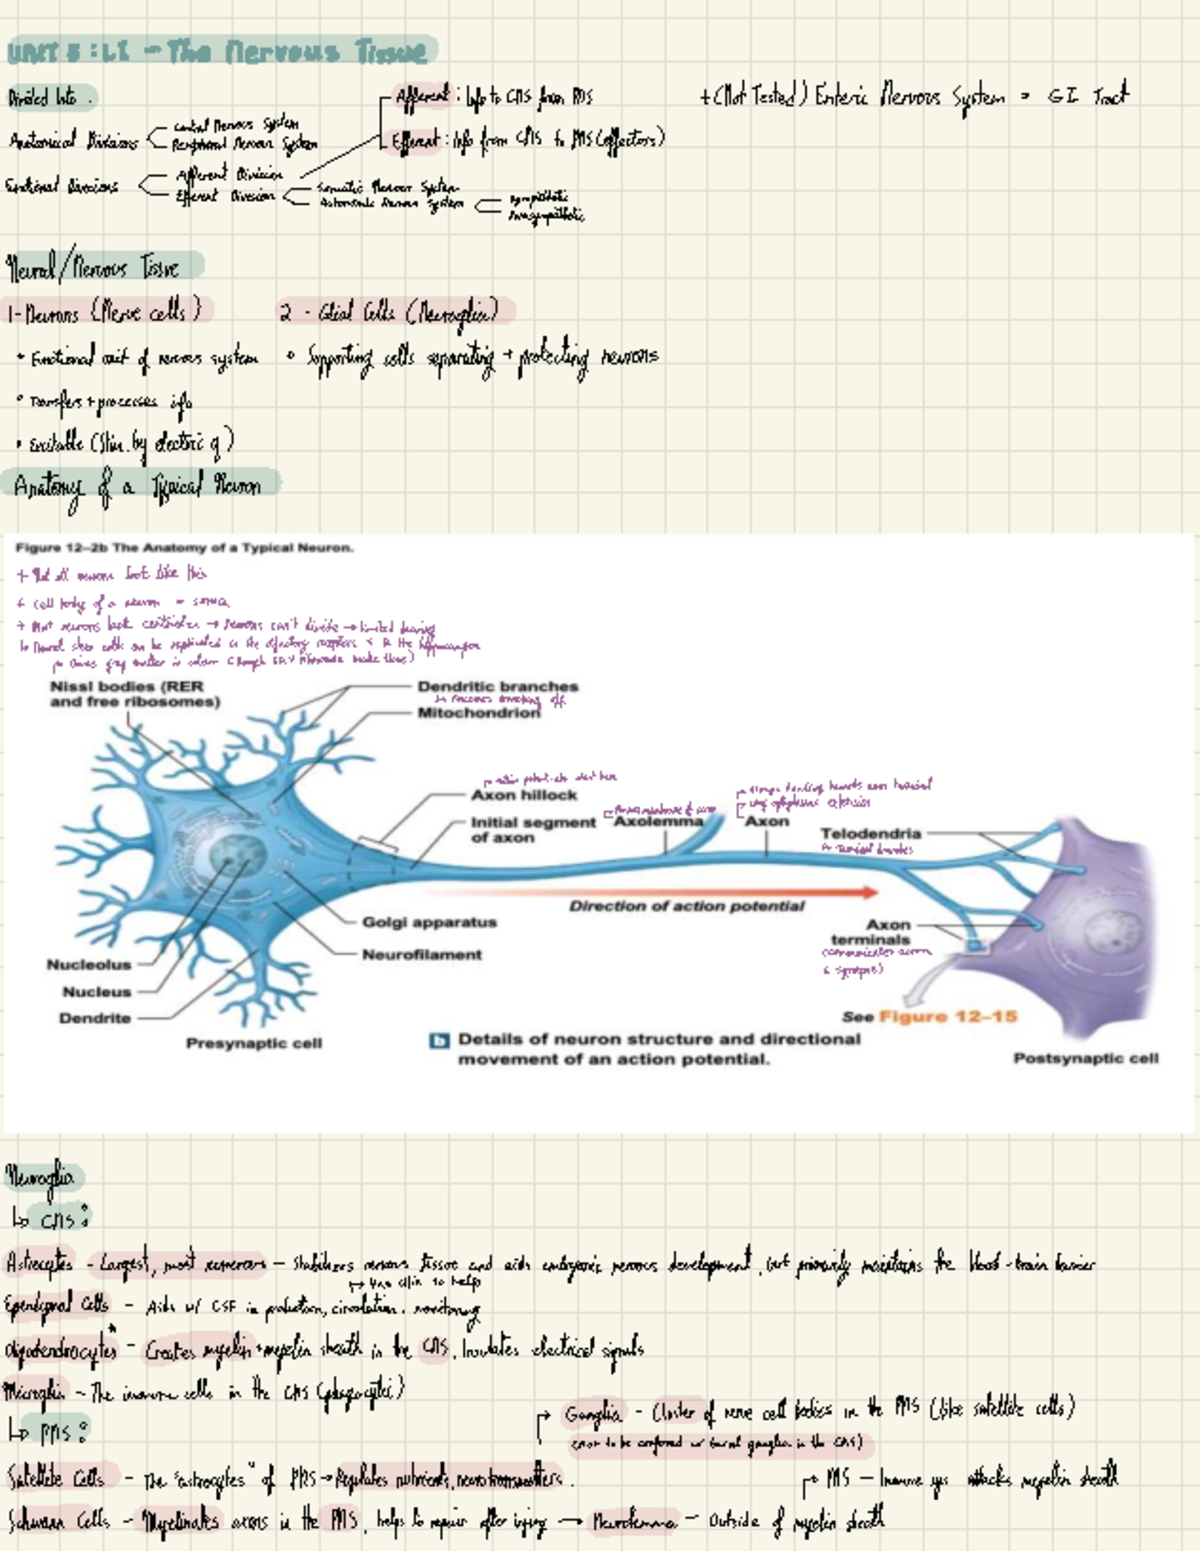 UNIT 5: L1 - The Nervous Tissue
Divided Into:
+ (Not Tested) Enteric Nervous System = GI Tract
Afferent: Info to CNS from PNS
Efferent: Info from CNS to PNS (effectors)
Anatomical Divisions
Central Nervous System
Peripheral Nervous System
Functional Divisions
Afferent Division
Efferent Division
Somatic Nervous System
Autonomic Nervous System
Sympathetic
Parasympathetic
Neural/Nervous Tissue
1-Neurons (Nerve cells)
2 - Glial Cells (Neuroglia)
• Functional unit of nervous system
• Supporting cells separating + protecting neurons
• Transfers + processes info
• Excitable (Stim. by electric q)
Anatomy of a Typical Neuron
Figure 12–2b The Anatomy of a Typical Neuron.
+ Not all neurons look like this
+ cell body of a neuron = soma
+ Most neurons lack centrioles → neurons can't divide → limited healing
↳ Neural stem cells can be replicated in the olfactory receptors + in the hippocampus
↳ Gives gray matter its colour (Rough ER + ribosomes make this)
Nissl bodies (RER
and free ribosomes)
Dendritic branches
↳ branching off
Mitochondrion
↳ action potentials start here
Axon hillock
Initial segment
of axon
Plasma membrane of axon
Axolemma
towards axon terminal
long cytoplasmic extension
Axon
Telodendria
↳ Terminal branches
Direction of action potential
Golgi apparatus
Neurofilament
Axon
terminals
(communicates across
a synapse)
Nucleolus
Nucleus
Dendrite
See Figure 12–15
Presynaptic cell
b Details of neuron structure and directional
movement of an action potential.
Postsynaptic cell
Neuroglia
↳ CNS:
Astrocytes - Largest, most numerous - Stabilizes nervous tissue and aids embryonic nervous development, but primarily maintains the blood-brain barrier
Ependymal Cells - Aids w/ CSF in production, circulation, monitoring
↳ Use cilia to help
Oligodendrocytes* - Creates myelin + myelin sheath in the CNS. Insulates electrical signals
Microglia - The immune cells in the CNS (phagocytic)
↳ PNS:
Ganglia - Cluster of nerve cell bodies in the PNS (like satellite cells)
(not to be confused w/ basal ganglia in the CNS)
Satellite Cells - The "astrocytes" of PNS → Regulates nutrients, neurotransmitters.
MS - Immune sys attacks myelin sheath
Schwann Cells - Myelinates axons in the PNS, helps to repair after injury → Neurolemma - Outside of myelin sheath